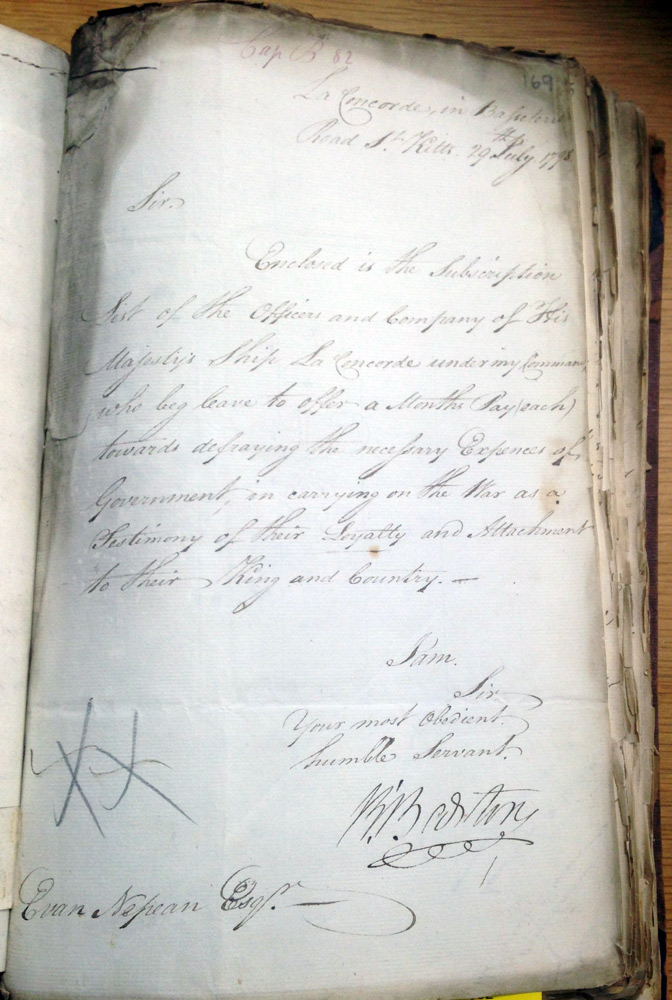 Cap B 82
169
La Concorde, in Basseterre
Road St. Kitts. 29th July 1798
Sir.
Enclosed is the Subscription
List of the Officers and Company of His
Majesty's Ship La Concorde under my Command
who beg leave to offer a Months Pay (each)
towards defraying the necessary Expences of
Government, in carrying on the War as a
Testimony of their Loyalty and Attachment
to their King and Country. —
I am.
Sir
Your most Obedient
humble Servant.
Evan Nepean Esqr.